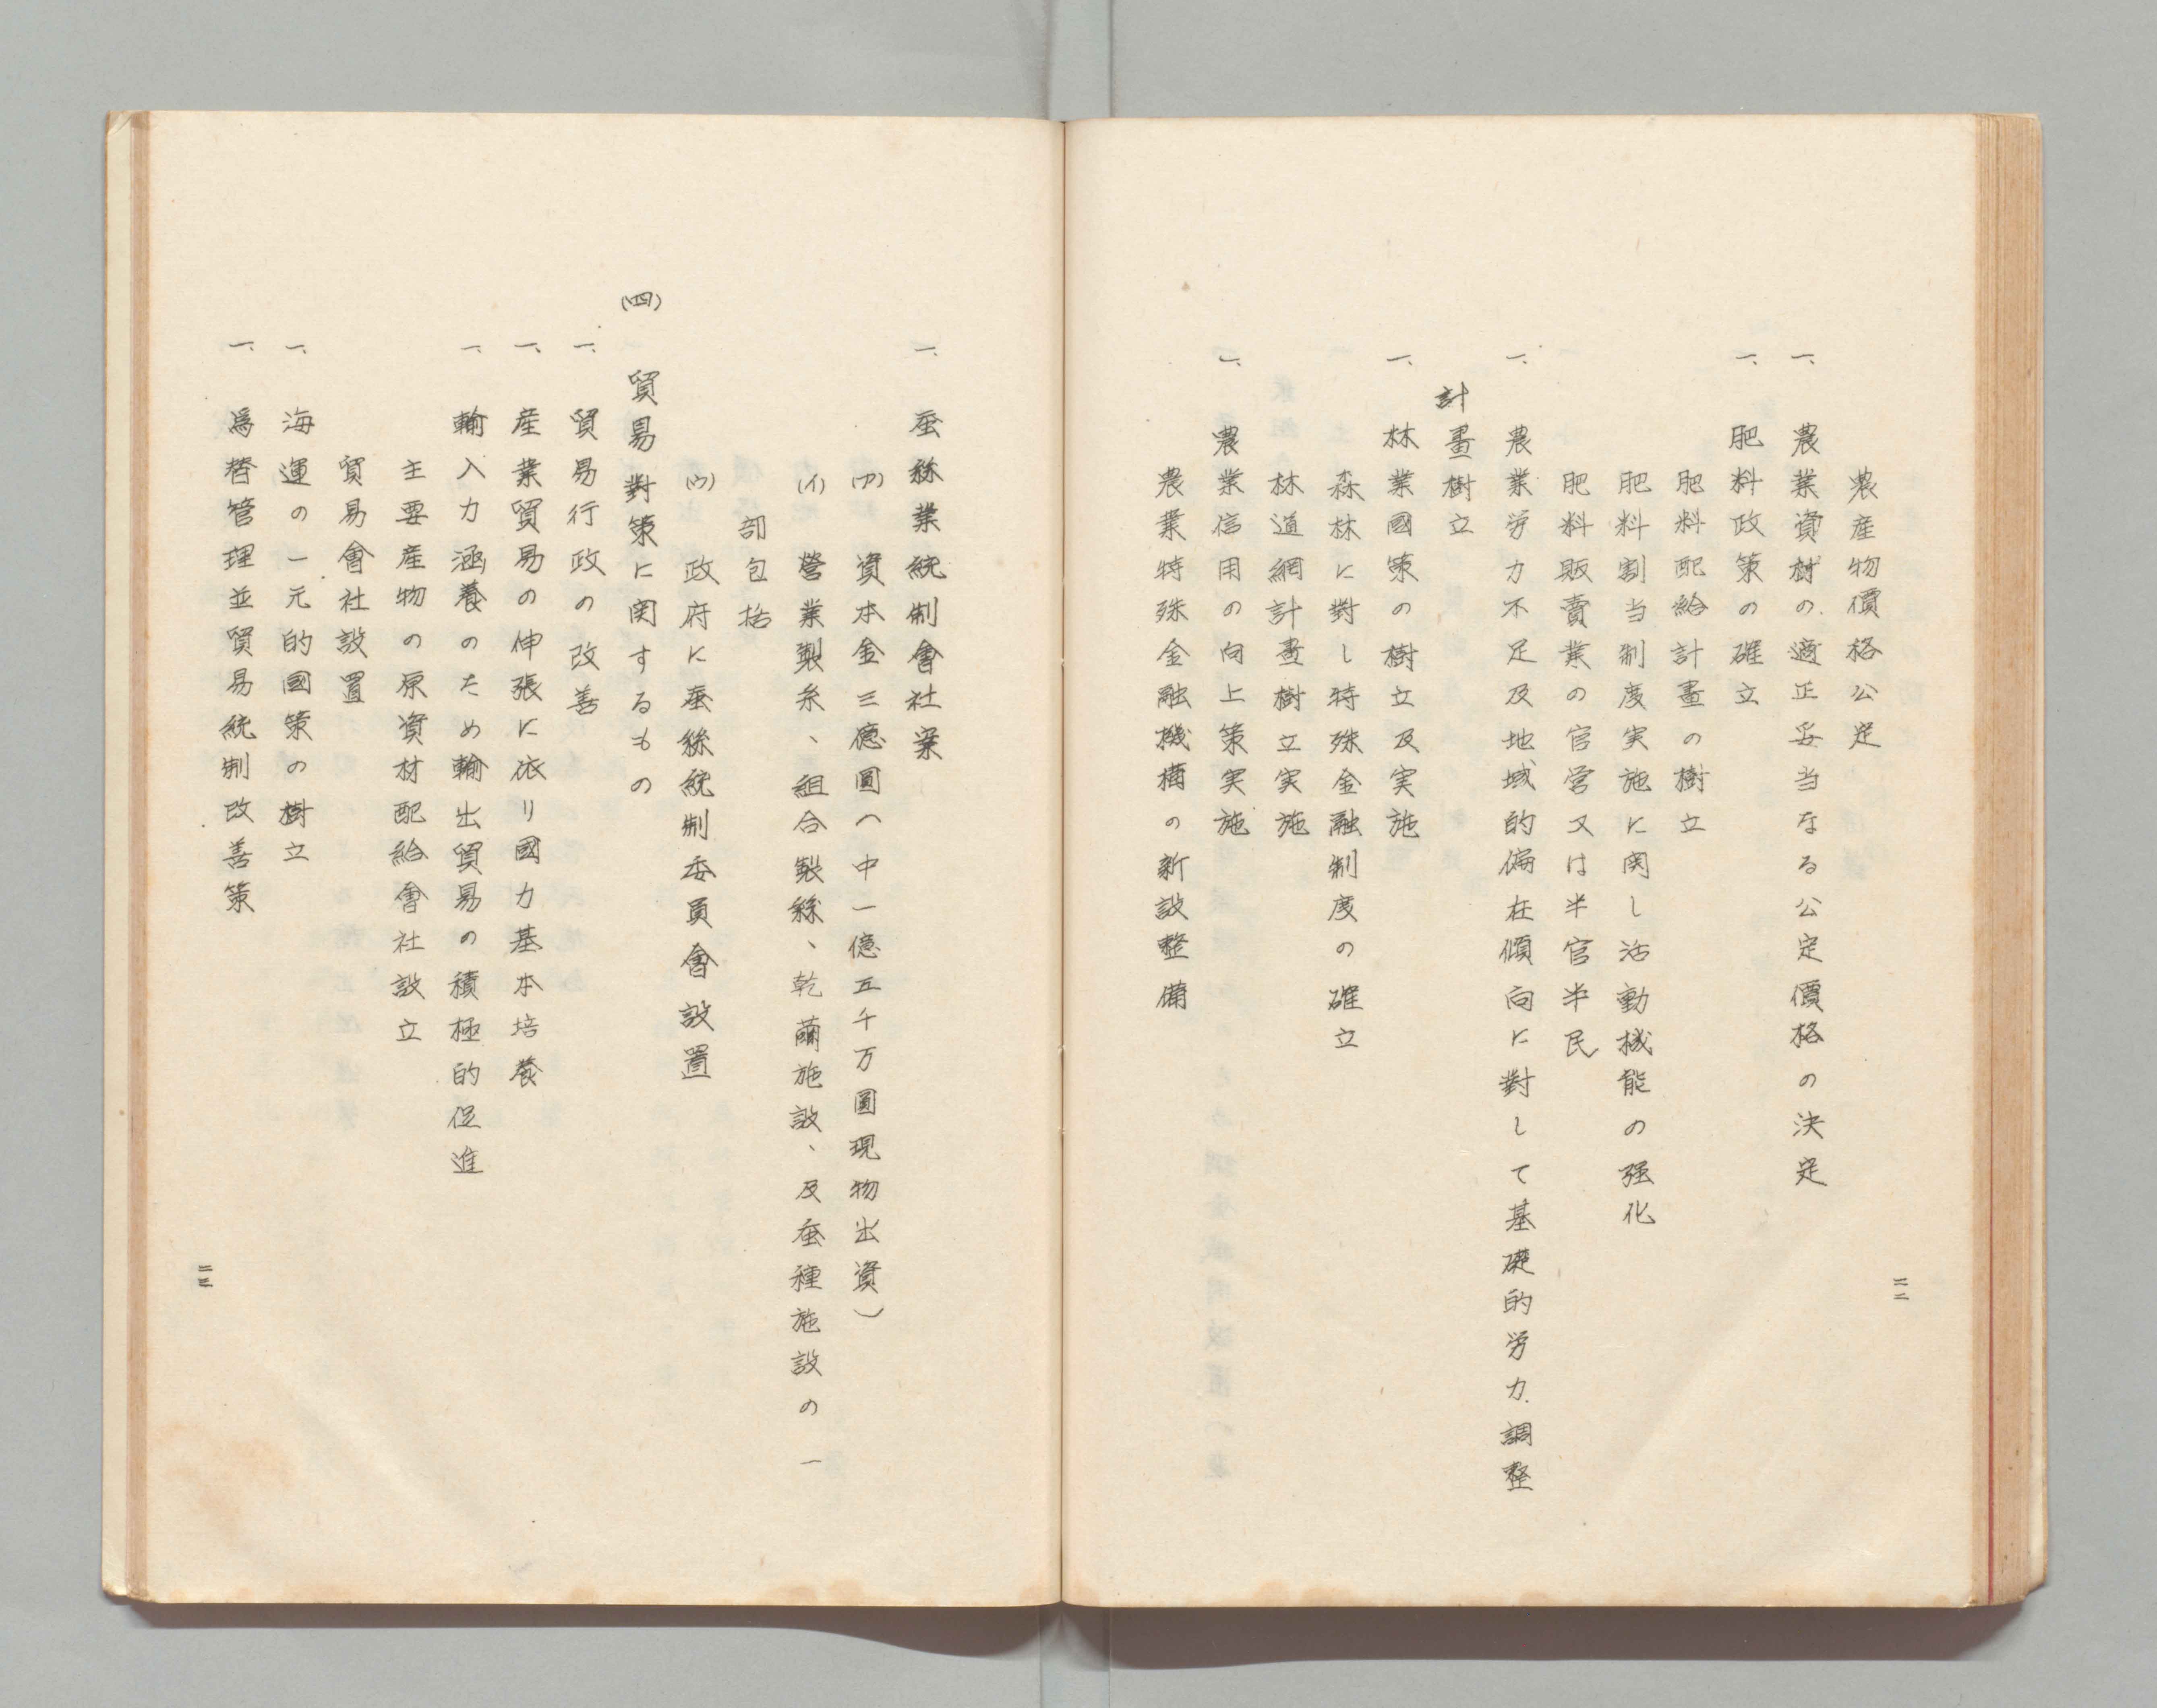 農産物價格公定
一、農業資材の適正妥当なる公定價格の決定
一、肥料政策の確立
肥料配給計畫の樹立
肥料割当制度実施に関し活動機能の强化
肥料販賣業の官営又は半官半民
一、農業労力不足及地域的偏在傾向に對して基礎的労力調整
計畫樹立
一、林業國策の樹立及実施
森林に對し特殊金融制度の確立
林道網計畫樹立実施
一、農業信用の向上策実施
農業特殊金融機構の新設整備
二二
一、蚕絲業統制會社案
(ア)資本金三億圓(中一億五千万圓現物出資)
(イ)營業製糸、組合製絲、乾繭施設、及蚕種施設の一
部包括
(ウ)政府に蚕絲統制委員會設置
(四)貿易對策に関するもの
一、貿易行政の改善
一、産業貿易の伸張に依り國力基本培養
一、輸入力涵養のため輸出貿易の積極的促進
主要産物の原資材配給會社設立
貿易會社設置
一、海運の一元的國策の樹立
一、爲替管理並貿易統制改善策
二三